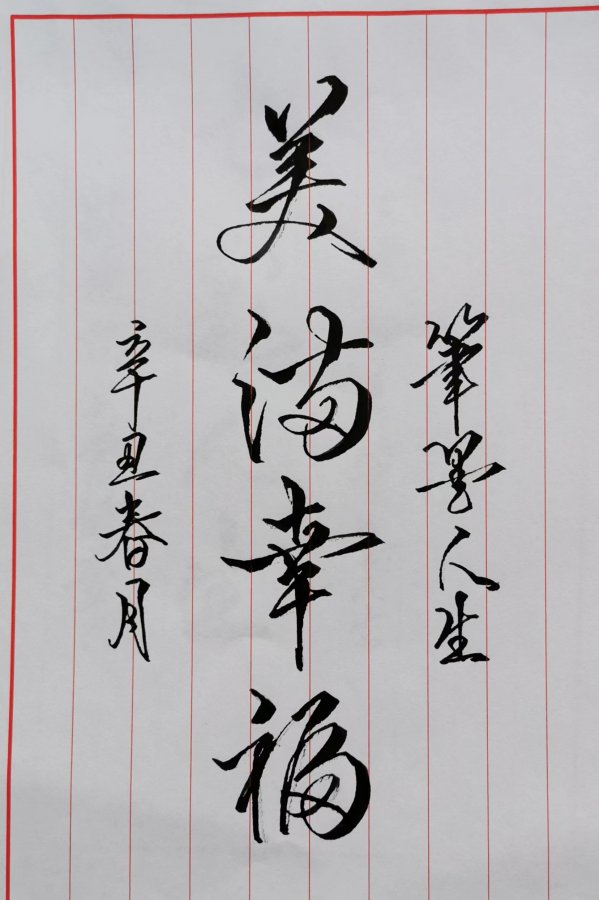 筆墨人生
美满幸福
辛丑春月